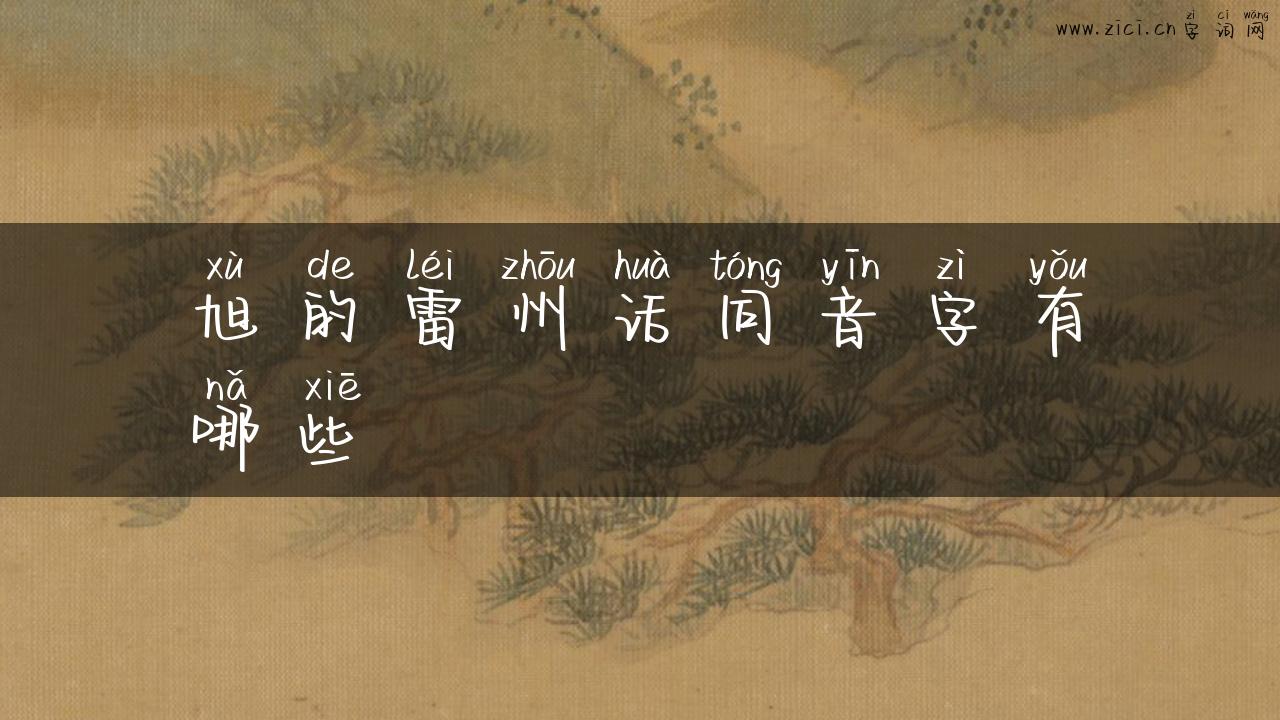 zì cí wǎng
www.zici.cn 字词网
xù de léi zhōu huà tóng yīn zì yǒu
旭的雷州话同音字有
nǎ xiē
哪些